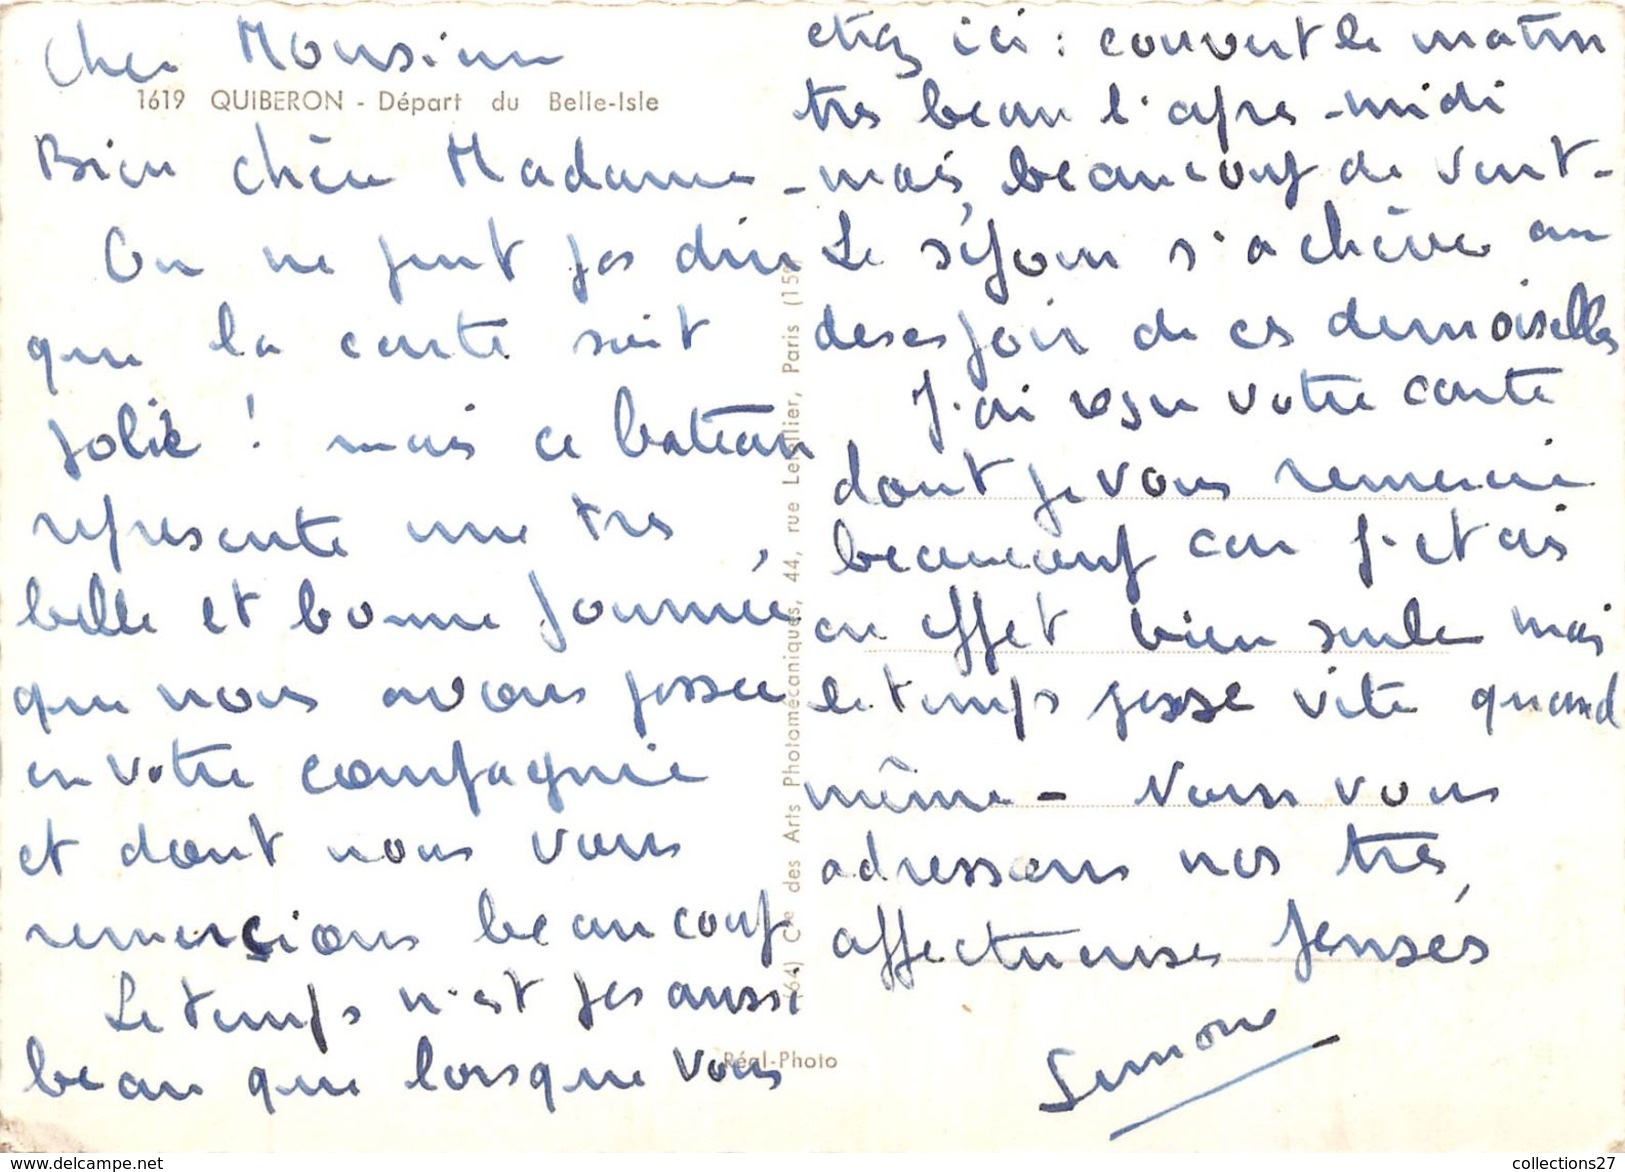 Cher Monsieur
1619 QUIBERON - Départ du Belle-Isle
Bien chère Madame -
On ne peut pas dire
que la carte soit
jolie ! mais ce bateau
represente une tres
belle et bonne journée,
que nous avons passée
en votre compagnie
et dont nous vous
remercions beaucoup
Le temps n'est pas aussi
beau que lorsque vous
etiez ici : couvert le matin
tres beau l'apres-midi
mais beaucoup de vent -
Le séjour s'achève au
desespoir de ces demoiselles
J'ai reçu votre carte
dont je vous remercie
beaucoup car j'etais
en effet bien seule mais
le temps passe vite quand
même - Nous vous
adressons nos très
affectueuses pensés
Simone
(64) Cie des Arts Photomécaniques, 44, rue Letellier, Paris (15e)
Réal-Photo
collections27